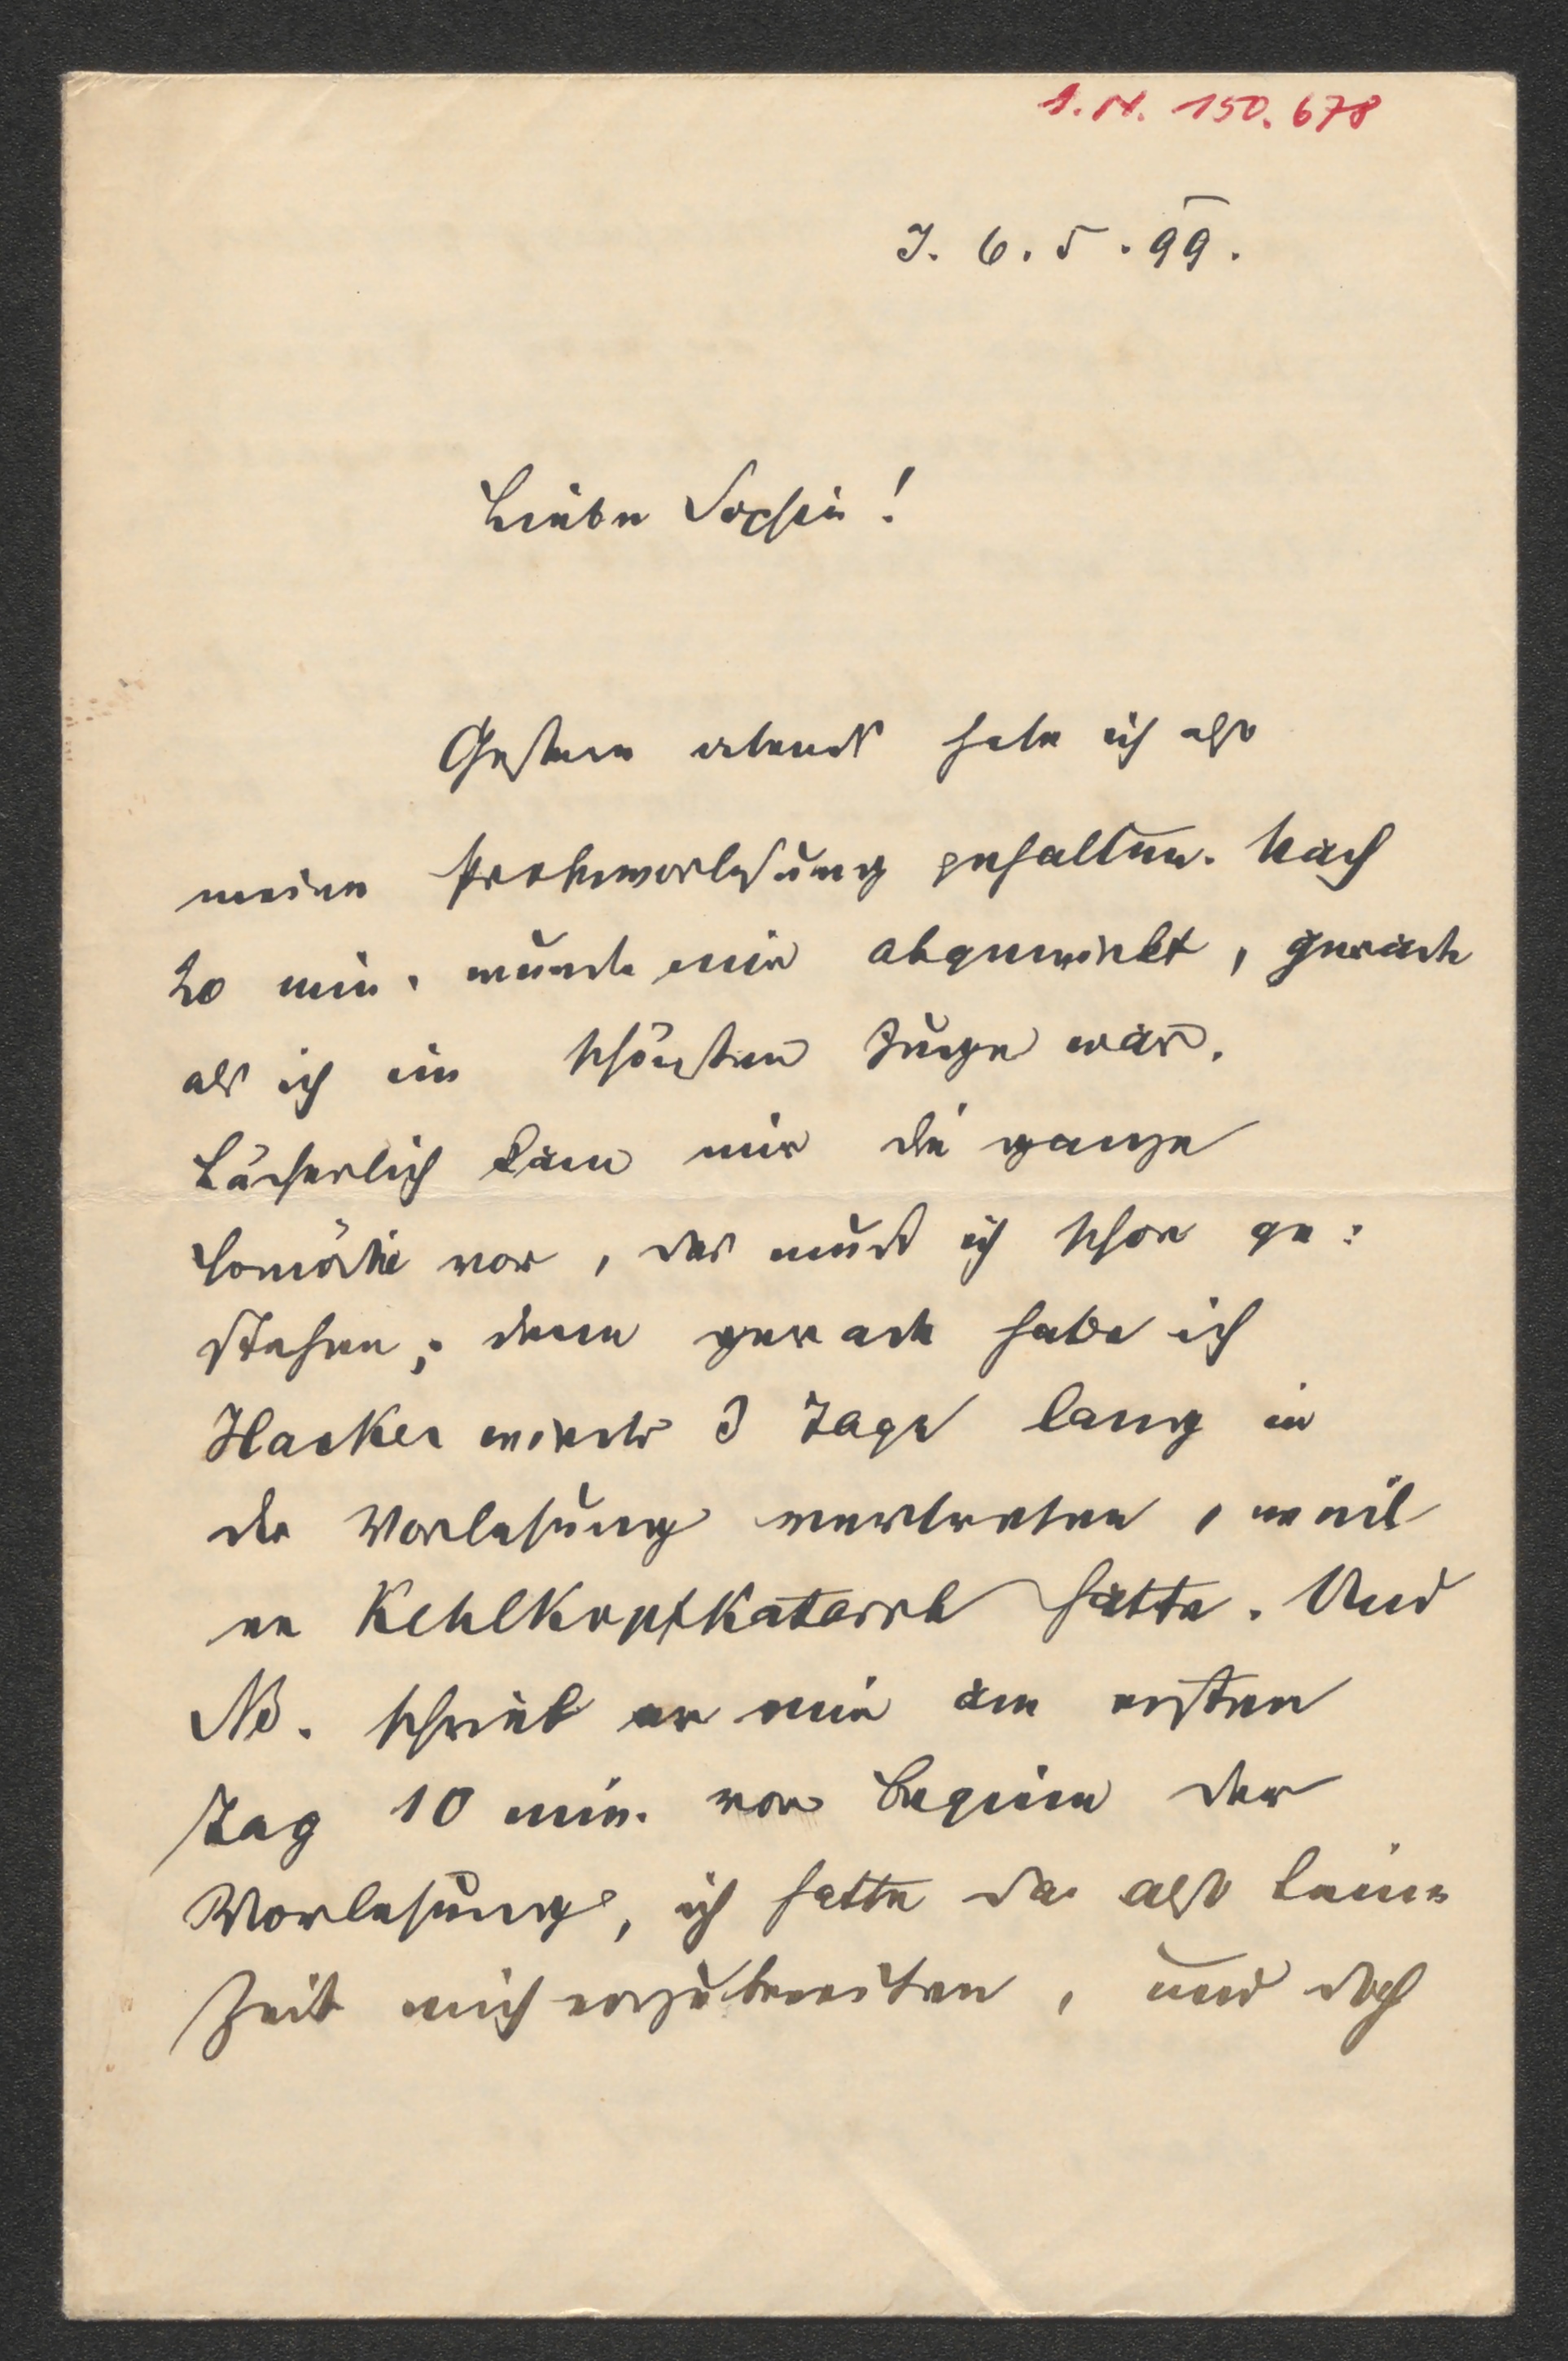 I.N. 150.678
I. 6. 5. 99.
Liebe Sophie!
Gestern abends habe ich also
meine Probevorlesung gehalten. Nach
20 min. wurde mir abgewinkt, gerade
als ich im schönsten Zuge war.
Lächerlich kam mir die ganze
Komödie vor, das muss ich schon ge:
stehen; denn gerade habe ich
Hacker wieder 3 Tage lang in
der Vorlesung vertreten, weil
er Kehlkopfkatarrh hatte. Und
NB. schrieb er mir am ersten
Tag 10 min. vor Beginn der
Vorlesung, ich hatte da also keine
Zeit mich vorzubereiten, und doch